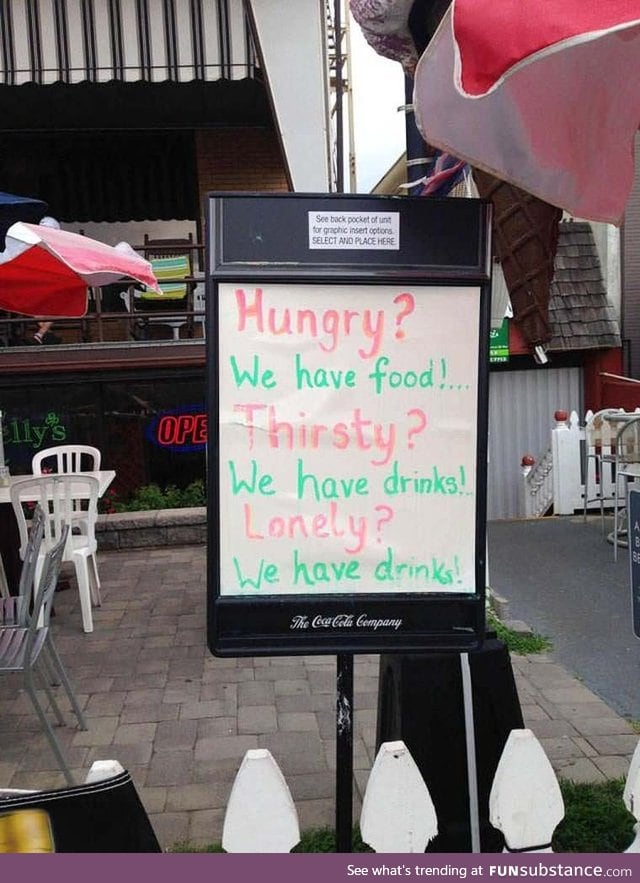 See back pocket of unit
for graphic insert options.
SELECT AND PLACE HERE.
Hungry?
We have food!...
Thirsty?
We have drinks!..
Lonely?
We have drinks!
The Coca-Cola Company
lly's
OPE
See what's trending at FUNsubstance.com